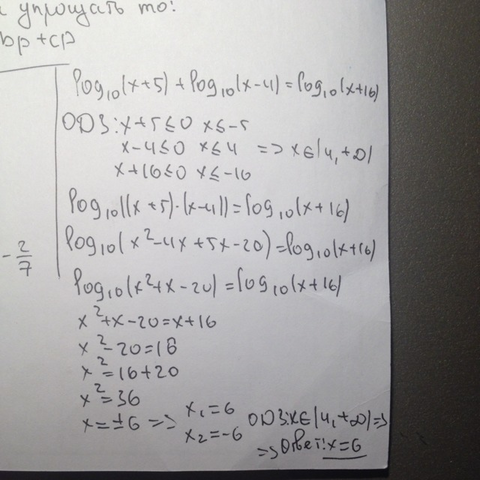 упрощать то:
bp+cp
log₁₀(x+5)+log₁₀(x-4)=log₁₀(x+16)
ОДЗ: x+5≤0 x≤-5
x-4≤0 x≤4 => x∈(4,+∞)
x+16≤0 x≤-16
log₁₀((x+5)·(x-4))=log₁₀(x+16)
log₁₀(x²-4x+5x-20)=log₁₀(x+16)
-2/7
log₁₀(x²+x-20)=log₁₀(x+16)
x²+x-20=x+16
x²-20=16
x²=16+20
x²=36
x=±6 => x₁=6 ОДЗ: x∈(4,+∞)=>
x₂=-6 => Ответ: x=6